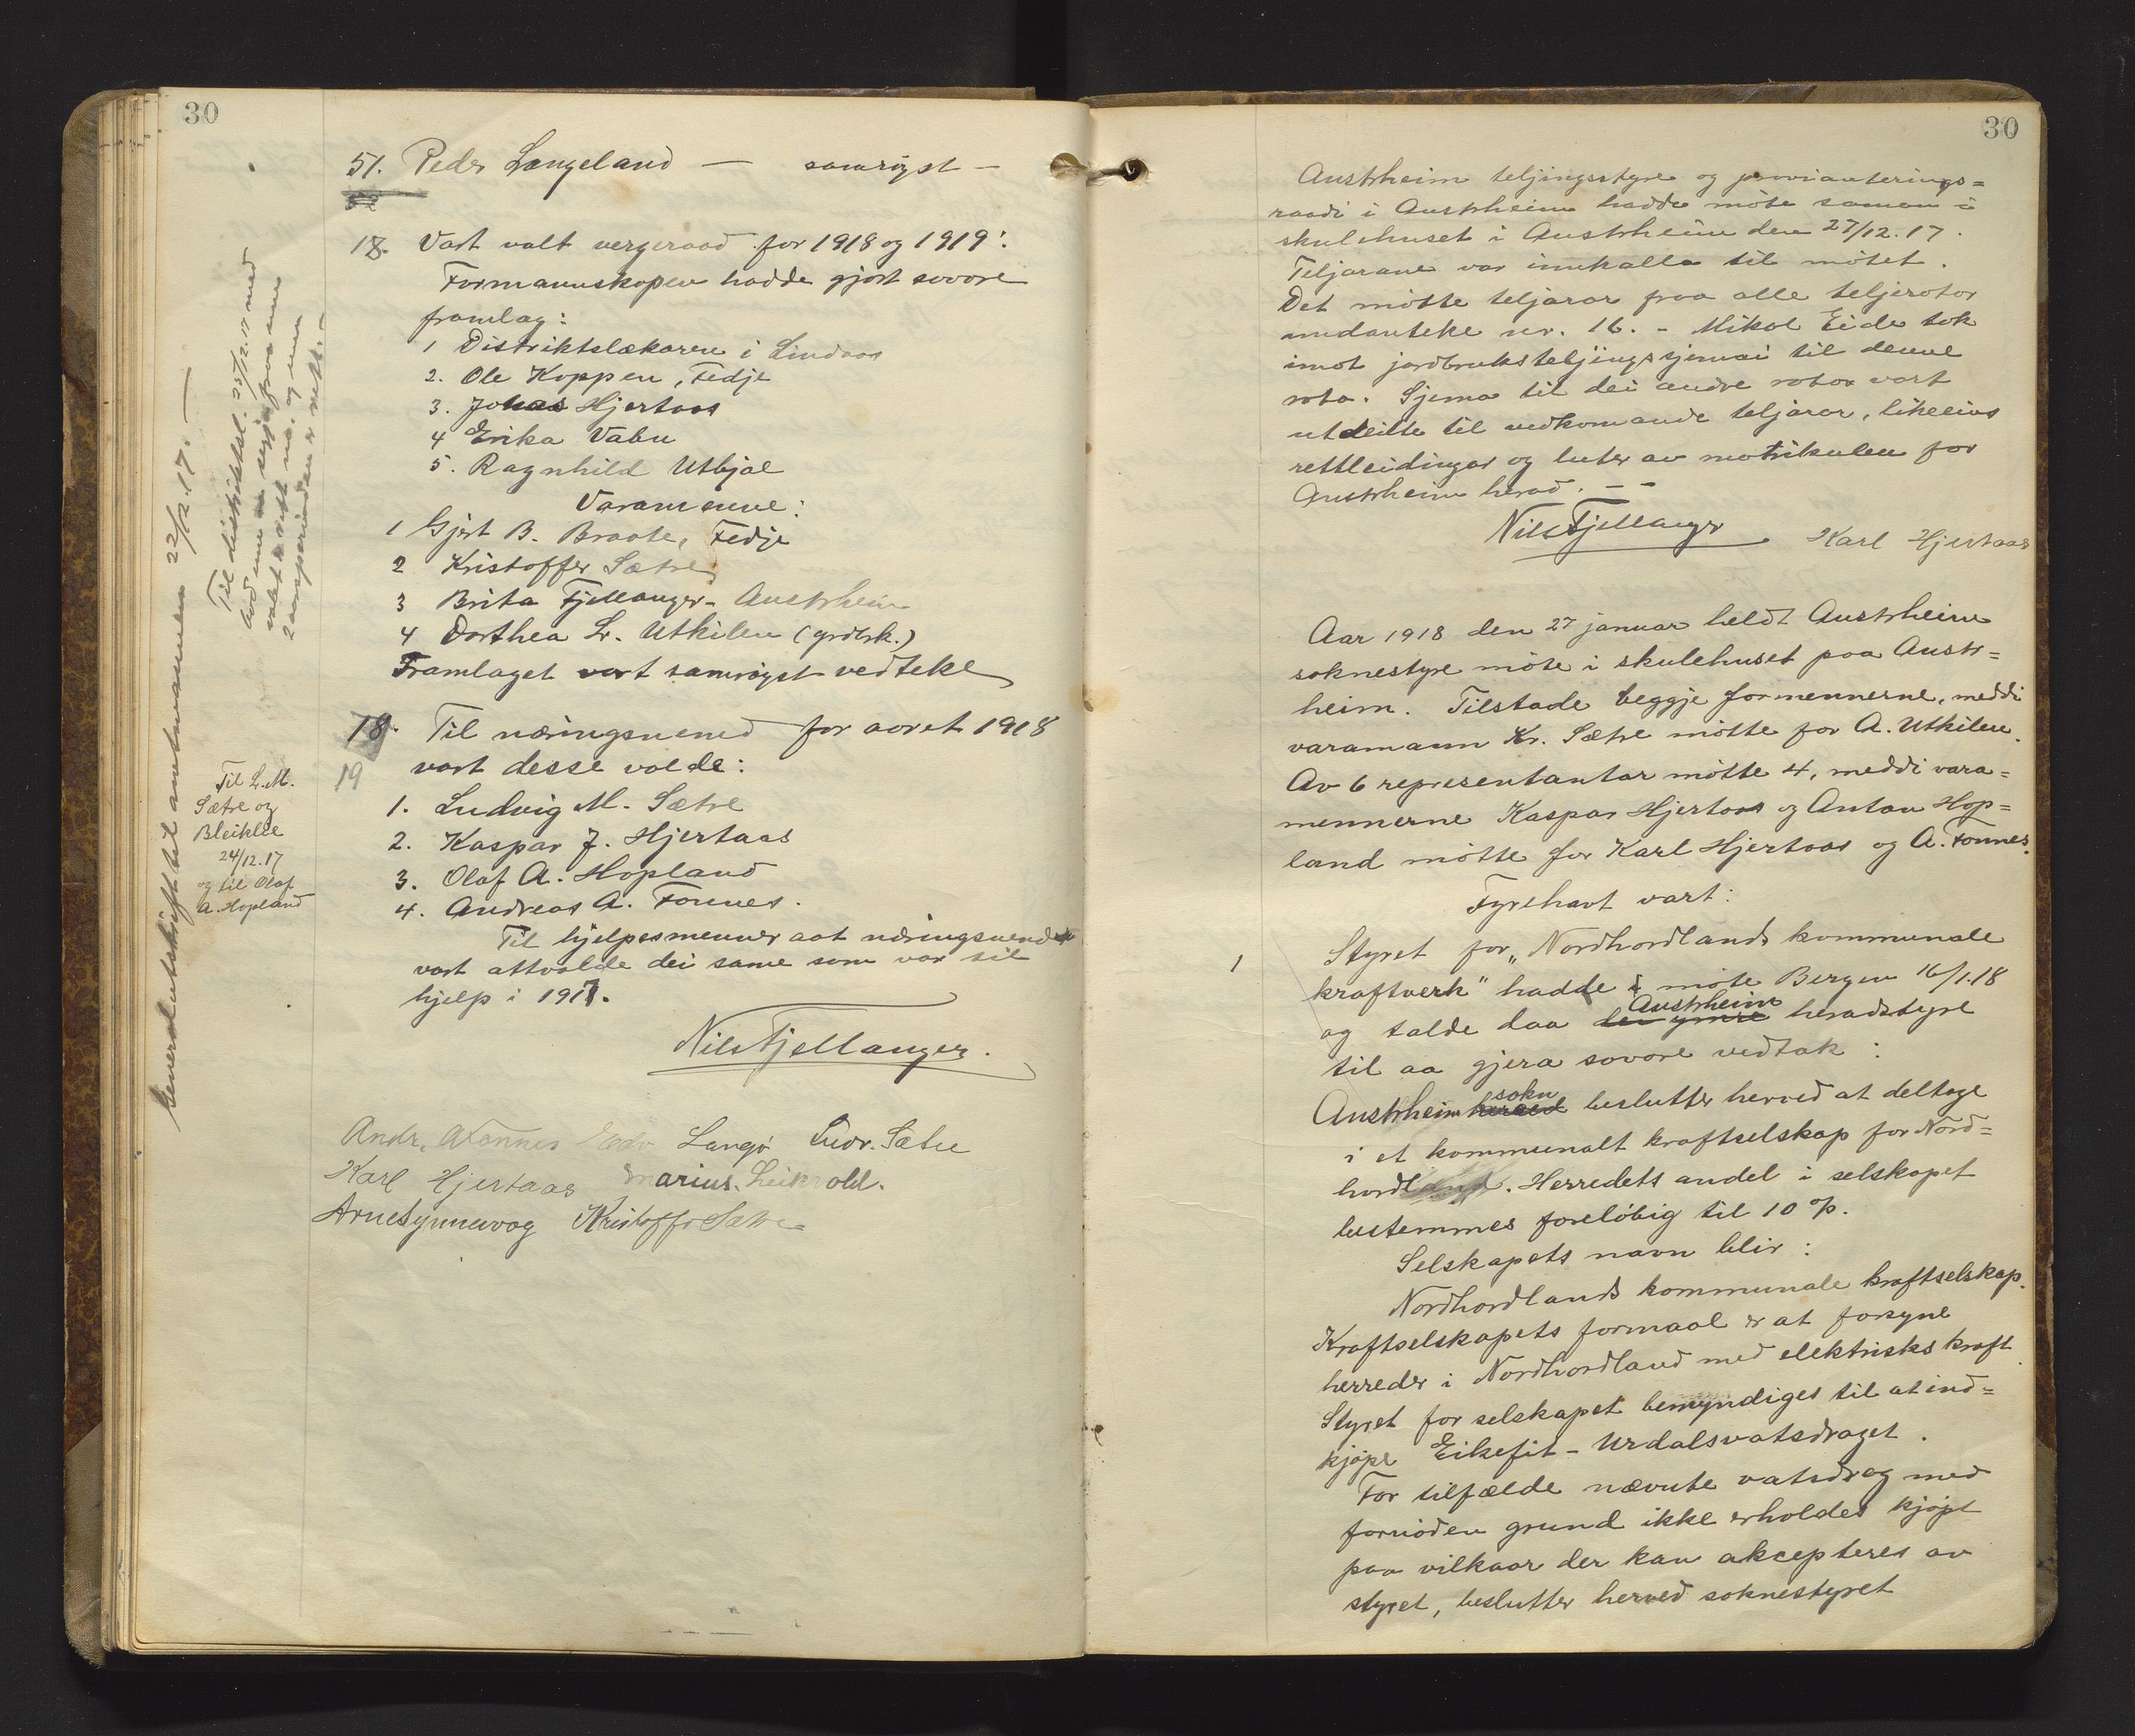 30
51. Peder Langeland — samrøyst —
18. Vart valt vergeraad for 1918 og 1919:
Formannskapen hadde gjort sovore
framlag:
1 Distriktslækaren i Lindaas
2. Ole Koppen, Fedje
3. Johas Hjertaas
4 Erika Vabu
5. Ragnhild Utkjal
Varamenne:
1 Gjert B. Braate, Fedje
2 Kristoffer Sætre
3 Brita Fjellanger - Austrheim
4 Dorthea Lr. Utkilen (grdbrk.)
Framlaget vart samrøyst vedteke
18. Til næringsnemd for aaret 1918
19 vart desse valde:
1. Ludvig M. Sætre
2. Kaspar J. Hjertaas
3. Olaf A. Hopland
4. Andreas A. Fonnes.
Til hjelpesmenner aat næringsnemd
vart attvalde dei same som var til
hjelp i 1917.
Nils Fjellanger.
Andr. A Fonnes Langø Ludv. Sætre
Karl Hjertaas Marius. Leikvold.
Arne Synnevaag Kristoffer Sætre
Generalutskrift til amtmannen 22/12.17. —
Til distriktsl. 25/12.17 med
bod um
valet er rett no. og um
2 aarsperioden er rett. —
Til L.M.
Sætre og
Bleiklie
24/12.17
og til Olaf
A. Hopland
30
Austrheim teljingsstyre og provianterings=
raadi i Austrheim hadde møte saman i
skulehuset i Austrheim den 27/12.17.
Teljarane var innkalla til møtet.
Det møtte teljarar fraa alle teljerotor
undanteke nr. 16. - Mikal Eide tok
imot jordbruksteljingssjemai til denne
rota. Sjema til dei andre rotor vart
utdeilte til vedkomande teljarar, likeeins
rettleidingar og luter av matrikulen for
Austrheim herad. — —
Nils Fjellanger Karl Hjertaas
Aar 1918 den 27 januar heldt Austrheim
soknestyre møte i skulehuset paa Austr=
heim. Tilstade beggje formennerne, meddi
varamann Kr. Sætre møtte for A. Utkilen.
Av 6 representantar møtte 4, meddi vara=
mennerne Kaspar Hjertaas og Anton Hop=
land møtte for Karl Hjertaas og A. Fonnes.
Fyrehavt vart:
1 Styret for „Nordhordlands kommunale
kraftverk" hadde i møte Bergen 16/1.18
og talde daa dei ymse Austrheim heradstyre
til aa gjera sovore vedtak:
Austrheim herred sokn beslutter herved at deltage
i et kommunalt kraftselskap for Nord=
hordland. Herredets andel i selskapet
bestemmes foreløbig til 10 %.
Selskapets navn blir:
Nordhordlands kommunale kraftselskap.
Kraftselskapets formaal er at forsyne
herreder i Nordhordland med elektrisks kraft.
Styret for selskapet bemyndiges til at ind=
kjøpe Eikefit - Urdalsvatsdraget.
For tilfælde nævnte vatsdrag med
fornøden grund ikke erholdes kjøpt
paa vilkaar der kan akcepteres av
styret, beslutter herved soknestyret